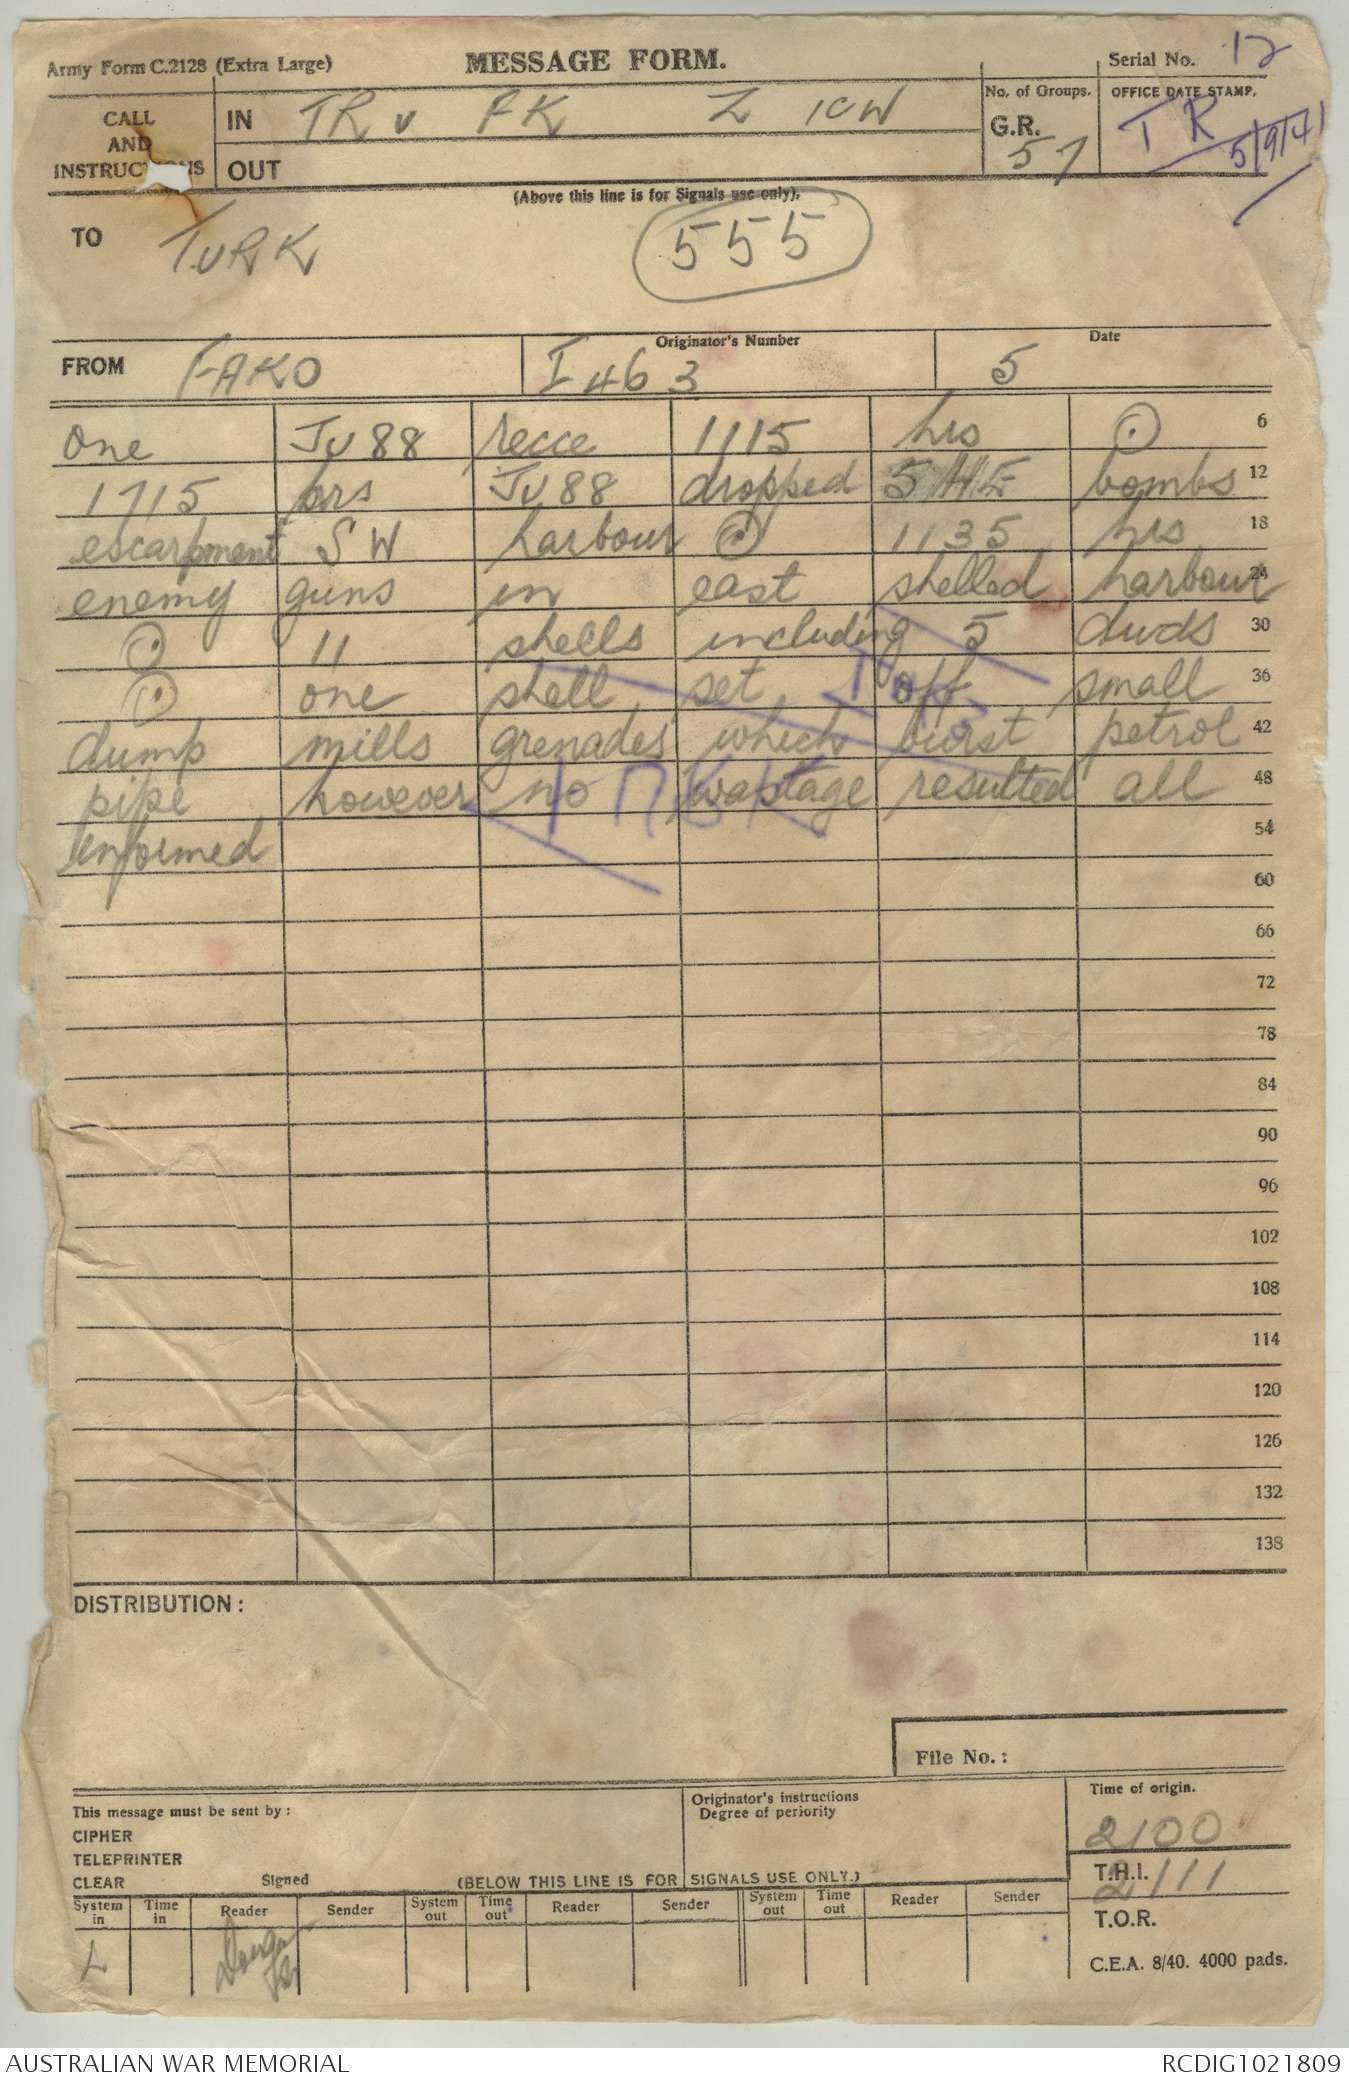 Army Form C.2128 (Extra Large) MESSAGE FORM. Serial No. 12
CALL AND INSTRUC NS IN TR v FK Z 10W No. of Groups. G.R. 57 OFFICE DATE STAMP. TR 5/9/41
OUT
(Above this line is for Signals use only).
TO TURK 555
FROM FAKO Originator's Number I 463 Date 5
one JU 88 recce 1115 hrs ⊙ 6
1715 hrs JU 88 dropped 5 HE bombs 12
escarpment SW harbour ⊙ 1135 hrs 18
enemy guns in east shelled harbour 24
⊙ 11 shells including 5 duds 30
⊙ one shell set off small 36
dump mills grenades which burst petrol 42
pipe however no wastage resulted all 48
informed 54
60
66
72
78
84
90
96
102
108
114
120
126
132
138
DISTRIBUTION:
File No.:
This message must be sent by:
CIPHER
TELEPRINTER
CLEAR
Signed
Originator's instructions
Degree of periority
Time of origin.
2100
(BELOW THIS LINE IS FOR SIGNALS USE ONLY.)
T.H.I. 2111
System in Time in Reader Sender System out Time out Reader Sender System out Time out Reader Sender
T.O.R.
L
C.E.A. 8/40. 4000 pads.
AUSTRALIAN WAR MEMORIAL RCDIG1021809